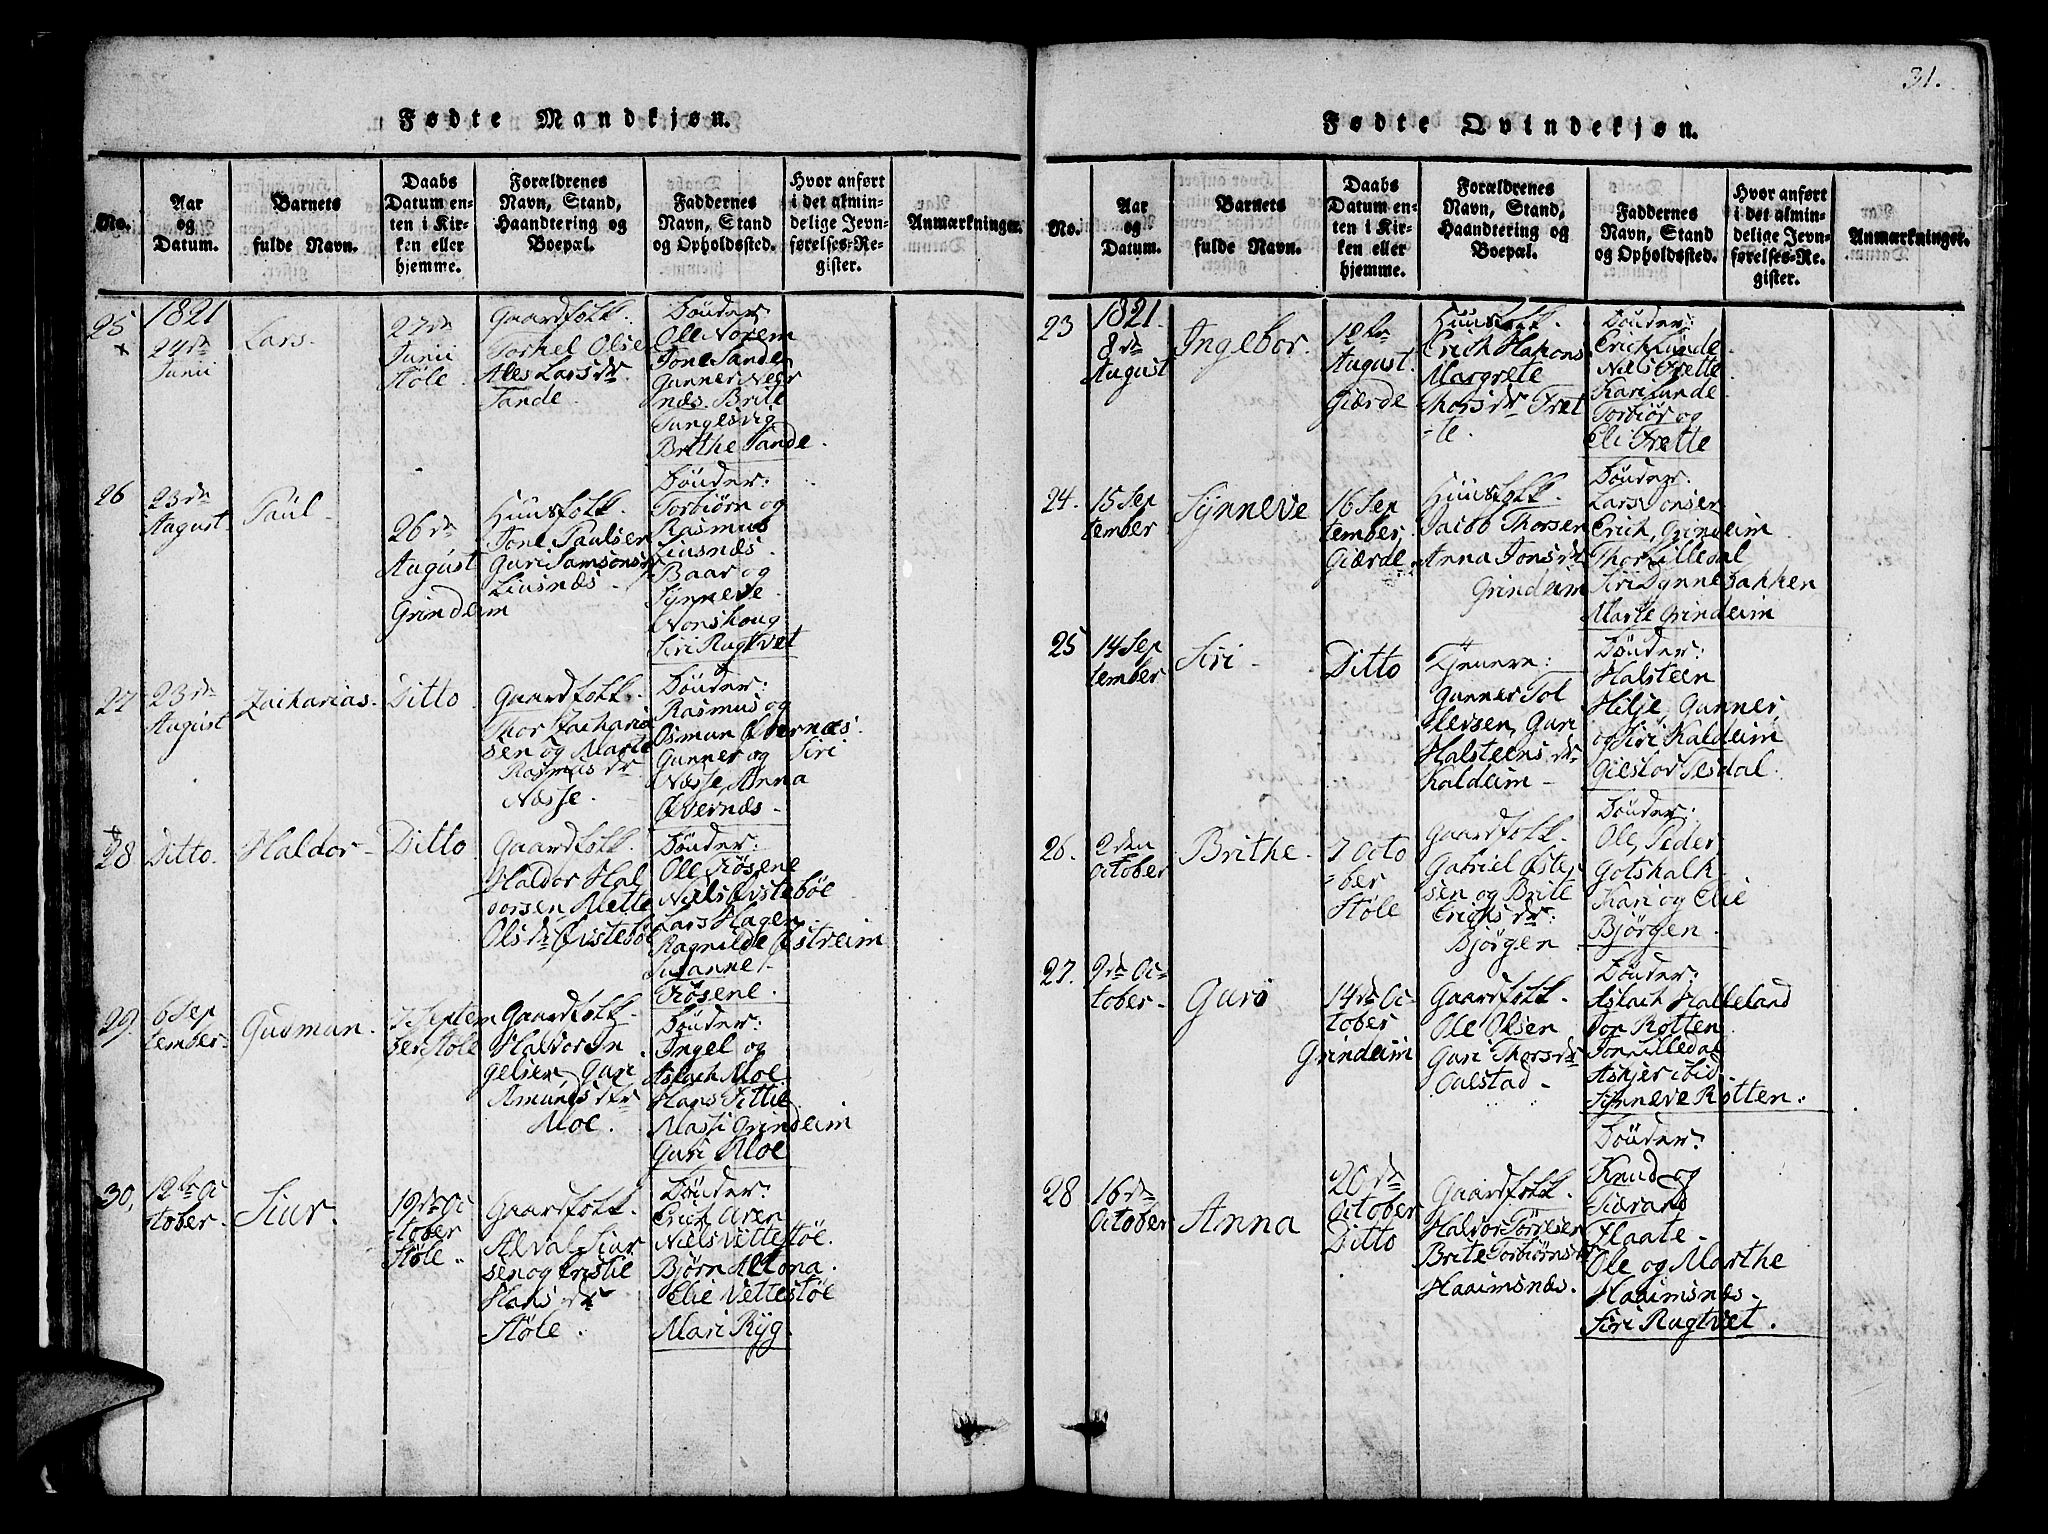 31.
Fødte Mandkjøn.
No.
Aar
og
Datum.
Barnets
fulde Navn.
Daabs
Datum en-
ten i Kir-
ken eller
hjemme.
Forældrenes
Navn, Stand,
Haandtering og
Boepæl.
Faddernes
Navn, Stand
og Opholdssted.
Hvor anført
i det almin-
delige Jevn-
førelses-Re-
gister.
Anmærkninger.
25
1821
24de
Junii
Lars.
27de
Junii
Støle.
Gaardfolk.
Torkel Olse
Ales Larsdr.
Sande.
Bönder:
Ole Norem
Jone Sande
Gunner Nær
næs. Brite
Tungesvig
Brithe Sande.
26
23de
August
Paul.
26de
August
Grindeim
Huusfolk.
Jone Paulsen
Guri Samsonsdr
Liusnæs.
Bönder:
Torbiørn og
Rasmus
Liusnæs.
Baar og
Synneve
Vonshoug
Siri Rugtvet
27
23de
August
Zacharias.
Ditto.
Gaardfolk.
Thor Zacharia
sen og Marte
Rasmusdr
Næsse.
Bönder:
Rasmus og
Osmun Øvernæs.
Gunner og Siri
Næsse, Anna
Øvernæs.
28
Ditto.
Haldor
Ditto.
Gaardfolk.
Haldor Hal
dorsen, Mette
Olsdr Øistebøe
Bönder:
Ole Frøsene
Niels Øistebøe
Lars Hagen
Ragnilde Østreim
Susanne
Frøsene.
29.
6 Sep
tember.
Gusman.
7 Septem
ber Støle
Gaardfolk.
Haldor In
gelsen, Guri
Amundsdtr
Moe.
Bönder:
Ingel og
Aslach Moe
Hans Vittie
Massi Grindeim
Guri Moe
30,
12te Oc
tober.
Siur.
19de Oc
tober
Støle.
Gaardfolk.
Alval Siur
sen og Kristie
Hansdr
Støle.
Bönder:
Erich Aren
Niels Vettestøe.
Bjørn Altona.
Elie Vettestøe
Mari Ryg.
Fødte Qvindekjøn.
No.
Aar
og
Datum.
Barnets
fulde Navn.
Daabs
Datum en-
ten i Kir-
ken eller
hjemme.
Forældrenes
Navn, Stand,
Haandtering og
Boepæl.
Faddernes
Navn, Stand
og Opholdssted.
Hvor anført
i det almin-
delige Jevn-
førelses-Re-
gister.
Anmærkninger.
23
1821.
8de
August
Ingebor.
12te
August.
Giærde
Huusfolk.
Erich Hakons
Margrete
Thorsdr Fret
te.
Bönder:
Erich Lunde
Niels Frette
Kari Lunde
Torbiør og
Eli Frette
24.
15 Sep
tember
Synneve
16 Sep
tember,
Giærde.
Huusfolk.
Jacob Thorsen
Anna Jonsdr
Grindeim
Bönder.
Lars Jonsen
Erich, Grindeim
Thor Lilledal
Siri Dynnebakken
Marte Grindeim
25
14 Sep
tember
Siri
Ditto
Tjenere:
Gunner Tol
levsen, Guri
Halsteensdr
Kaldeim
Bönder:
Halsteen
Hilje, Gunner,
og Siri Kaldeim
Giestor Sesdal.
26.
2den
October
Brithe.
7 Octo
ber
Støle
Gaardfolk.
Gabriel Øste
sen og Brite
Erichsdr:
Bjørgen
Bönder:
Ole, Peder
Gotshalk
Kari og Elie
Bjørgen.
27.
9de Oc
tober.
Guro
14de Oc
tober
Grindeim
Gaardfolk.
Ole Olsen
Guri Thorsdr
Oalstad.
Bönder:
Aslach Halleland
Jon Rotten
Jon Lilledal
Askjer ibid.
Synneve Rotten.
28
16de
October
Anna
20de
October
Ditto
Gaardfolk.
Haldor Tørresen
Brite Torbiørnsdr
Haaimsnæs.
Bönder:
Knud og
Siærand
Flaate.
Ole og Marthe
Haaimsnæs.
Siri Rugtvet.